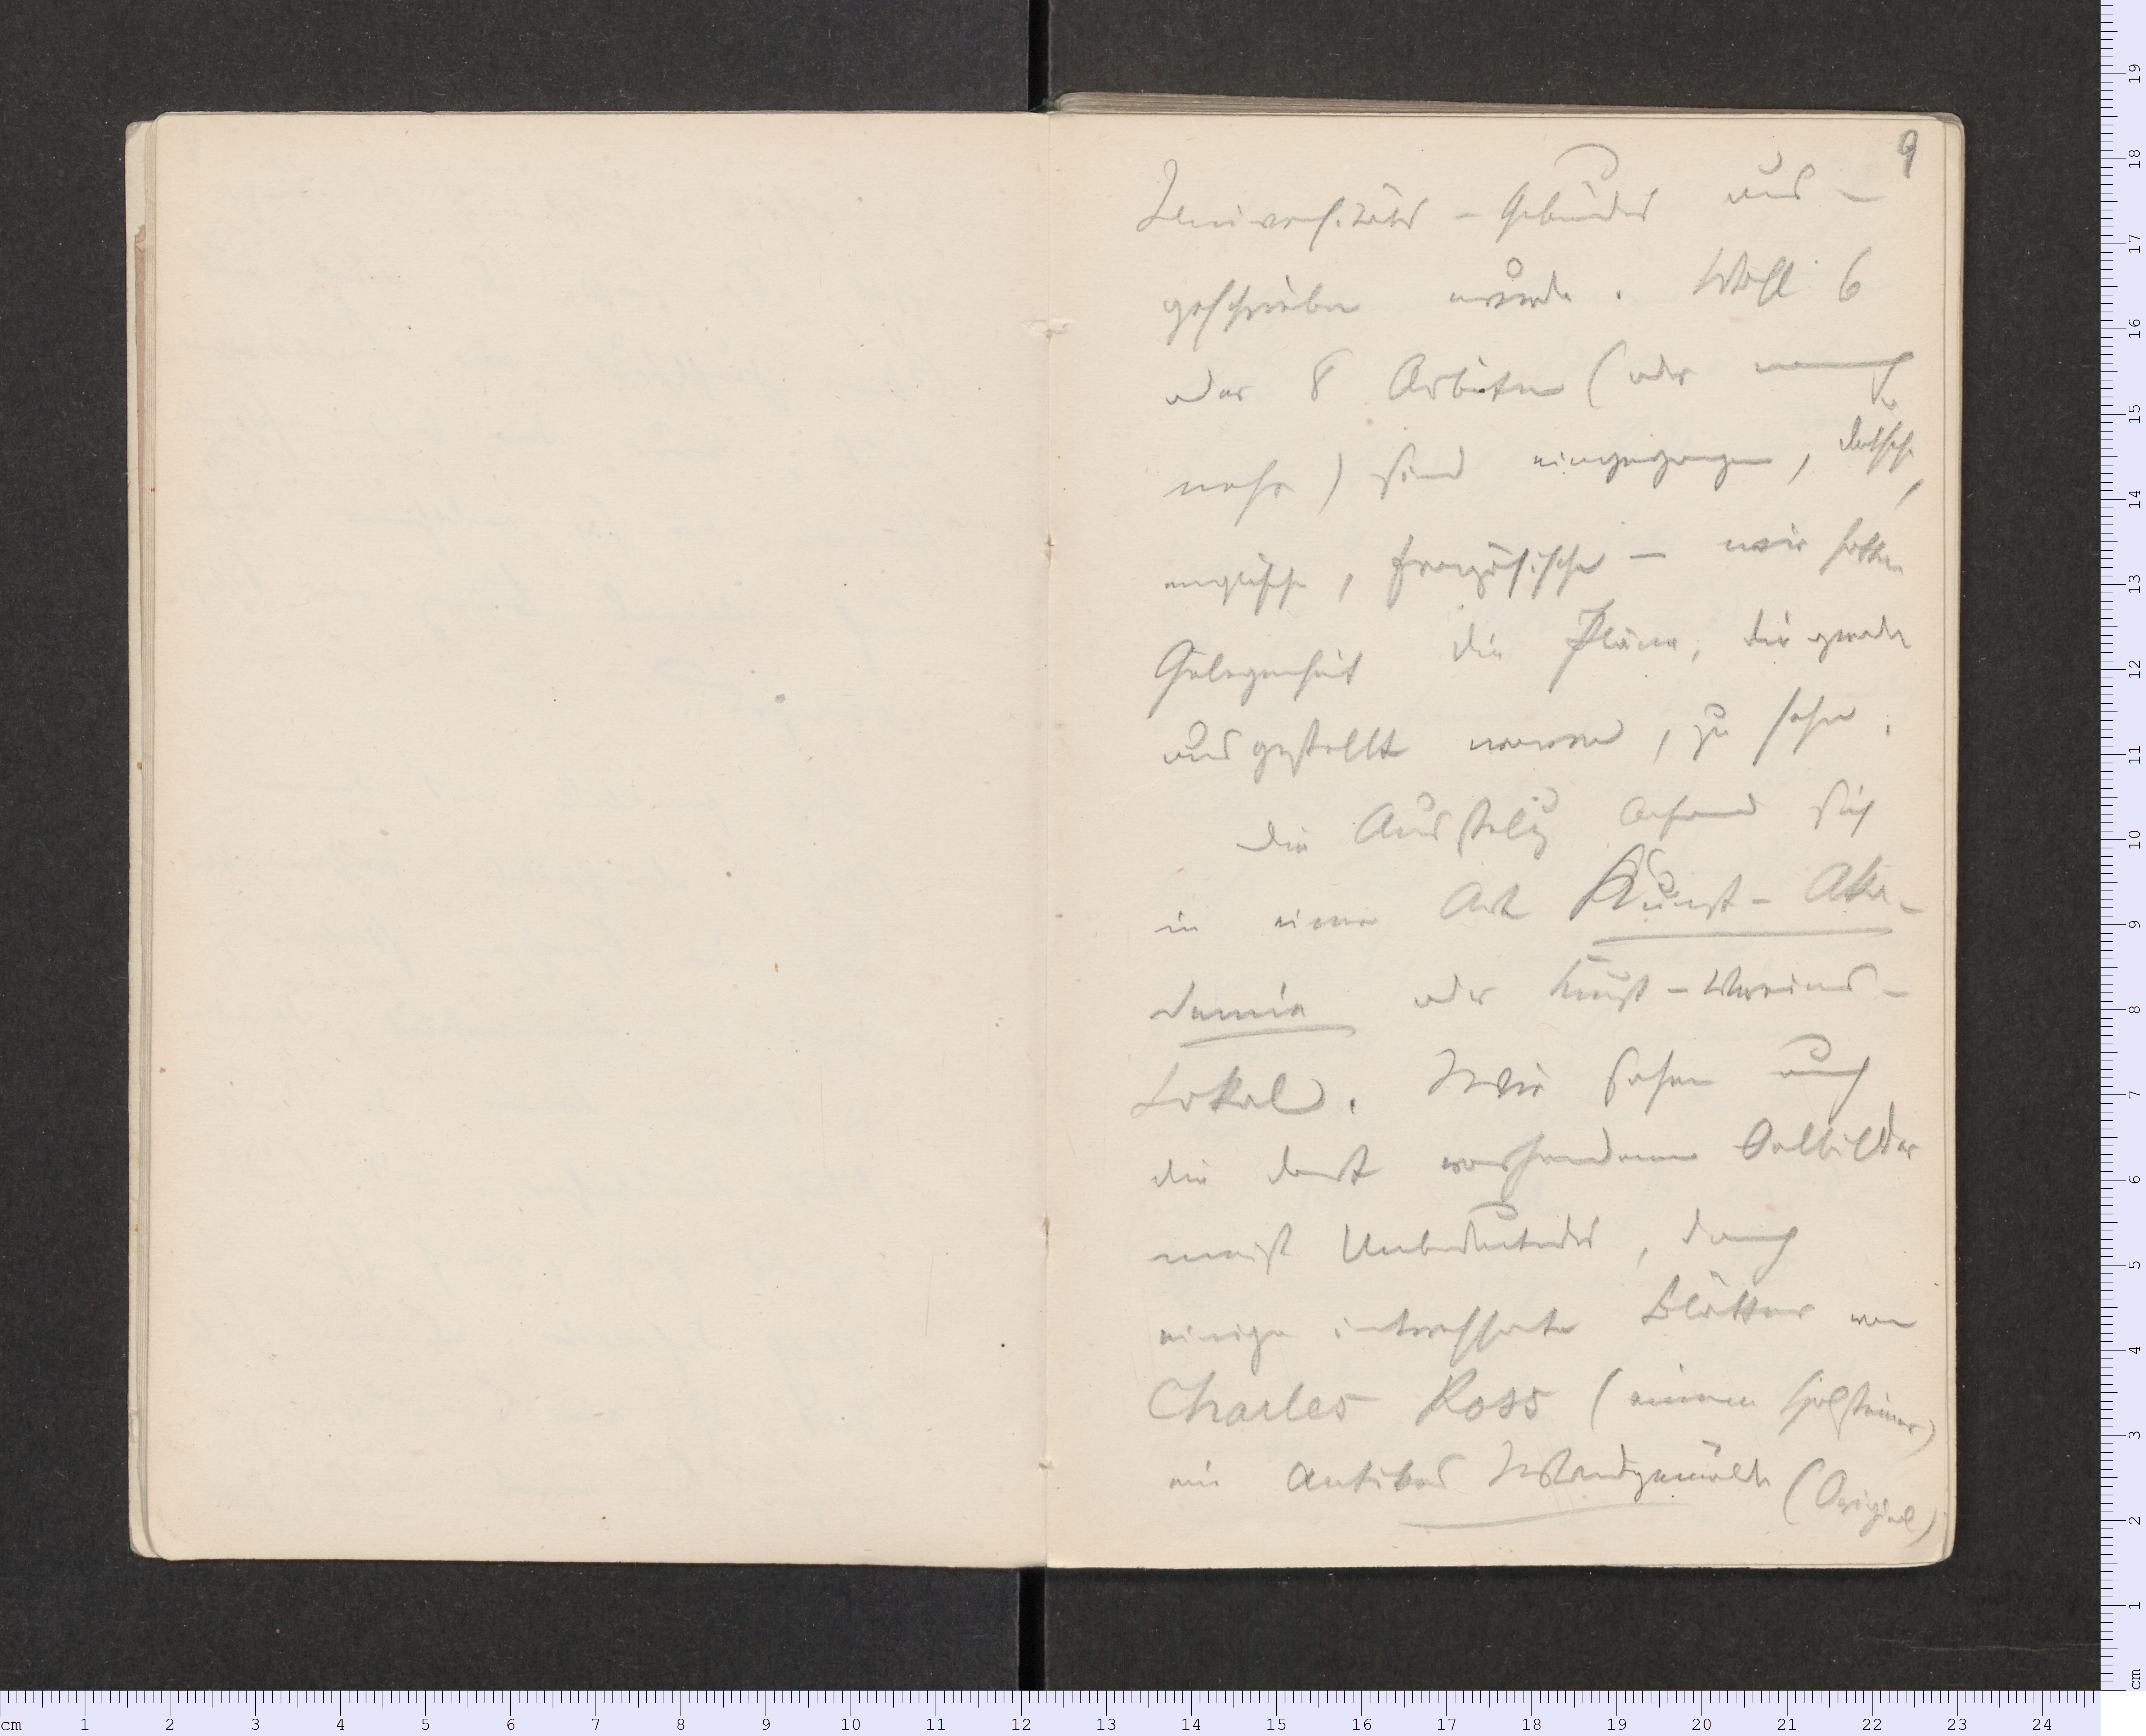 9
Universitäts-Gebäudes aus-
geschrieben wurde. Wohl 6
oder 8 Arbeiten (oder noch
mehr) sind eingegangen, deutsche,
englische, französische – wir hatten
Gelegenheit die Pläne, die gerade
ausgestellt waren, zu sehen.
Die Ausstellg befand sich
in einer Art Kunst-Aka-
demie oder Kunst-Vereins-
Lokal. Wir sahen auch
die dort vorhandenen Oelbilder
meist Unbedeutendes, doch
einige interessante Blätter von
Charles Ross (einem Holsteiner)
ein antikes Wandgemälde (Original)